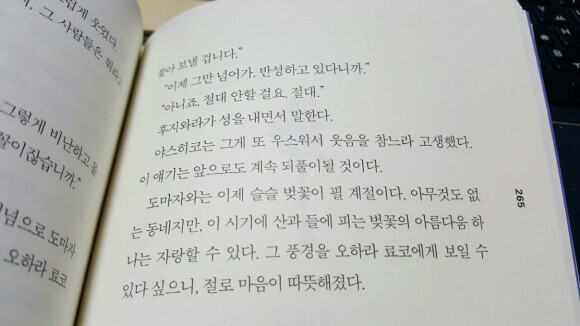 럽게 웃었다.
그 사람들은 뭐라고
그렇게 비난하고 을
꼴이잖습니까."
념으로 도마자
오하라 료코
쫓아 보낼 겁니다."
"이제 그만 넘어가. 반성하고 있다니까."
"아니죠, 절대 안할 걸요. 절대."
후지와라가 성을 내면서 말한다.
야스히코는 그게 또 우스워서 웃음을 참느라 고생했다.
이 얘기는 앞으로도 계속 되풀이될 것이다.
도마자와는 이제 슬슬 벚꽃이 필 계절이다. 아무것도 없
는 동네지만, 이 시기에 산과 들에 피는 벚꽃의 아름다움 하
나는 자랑할 수 있다. 그 풍경을 오하라 료코에게 보일 수
있다 싶으니, 절로 마음이 따뜻해졌다.
265